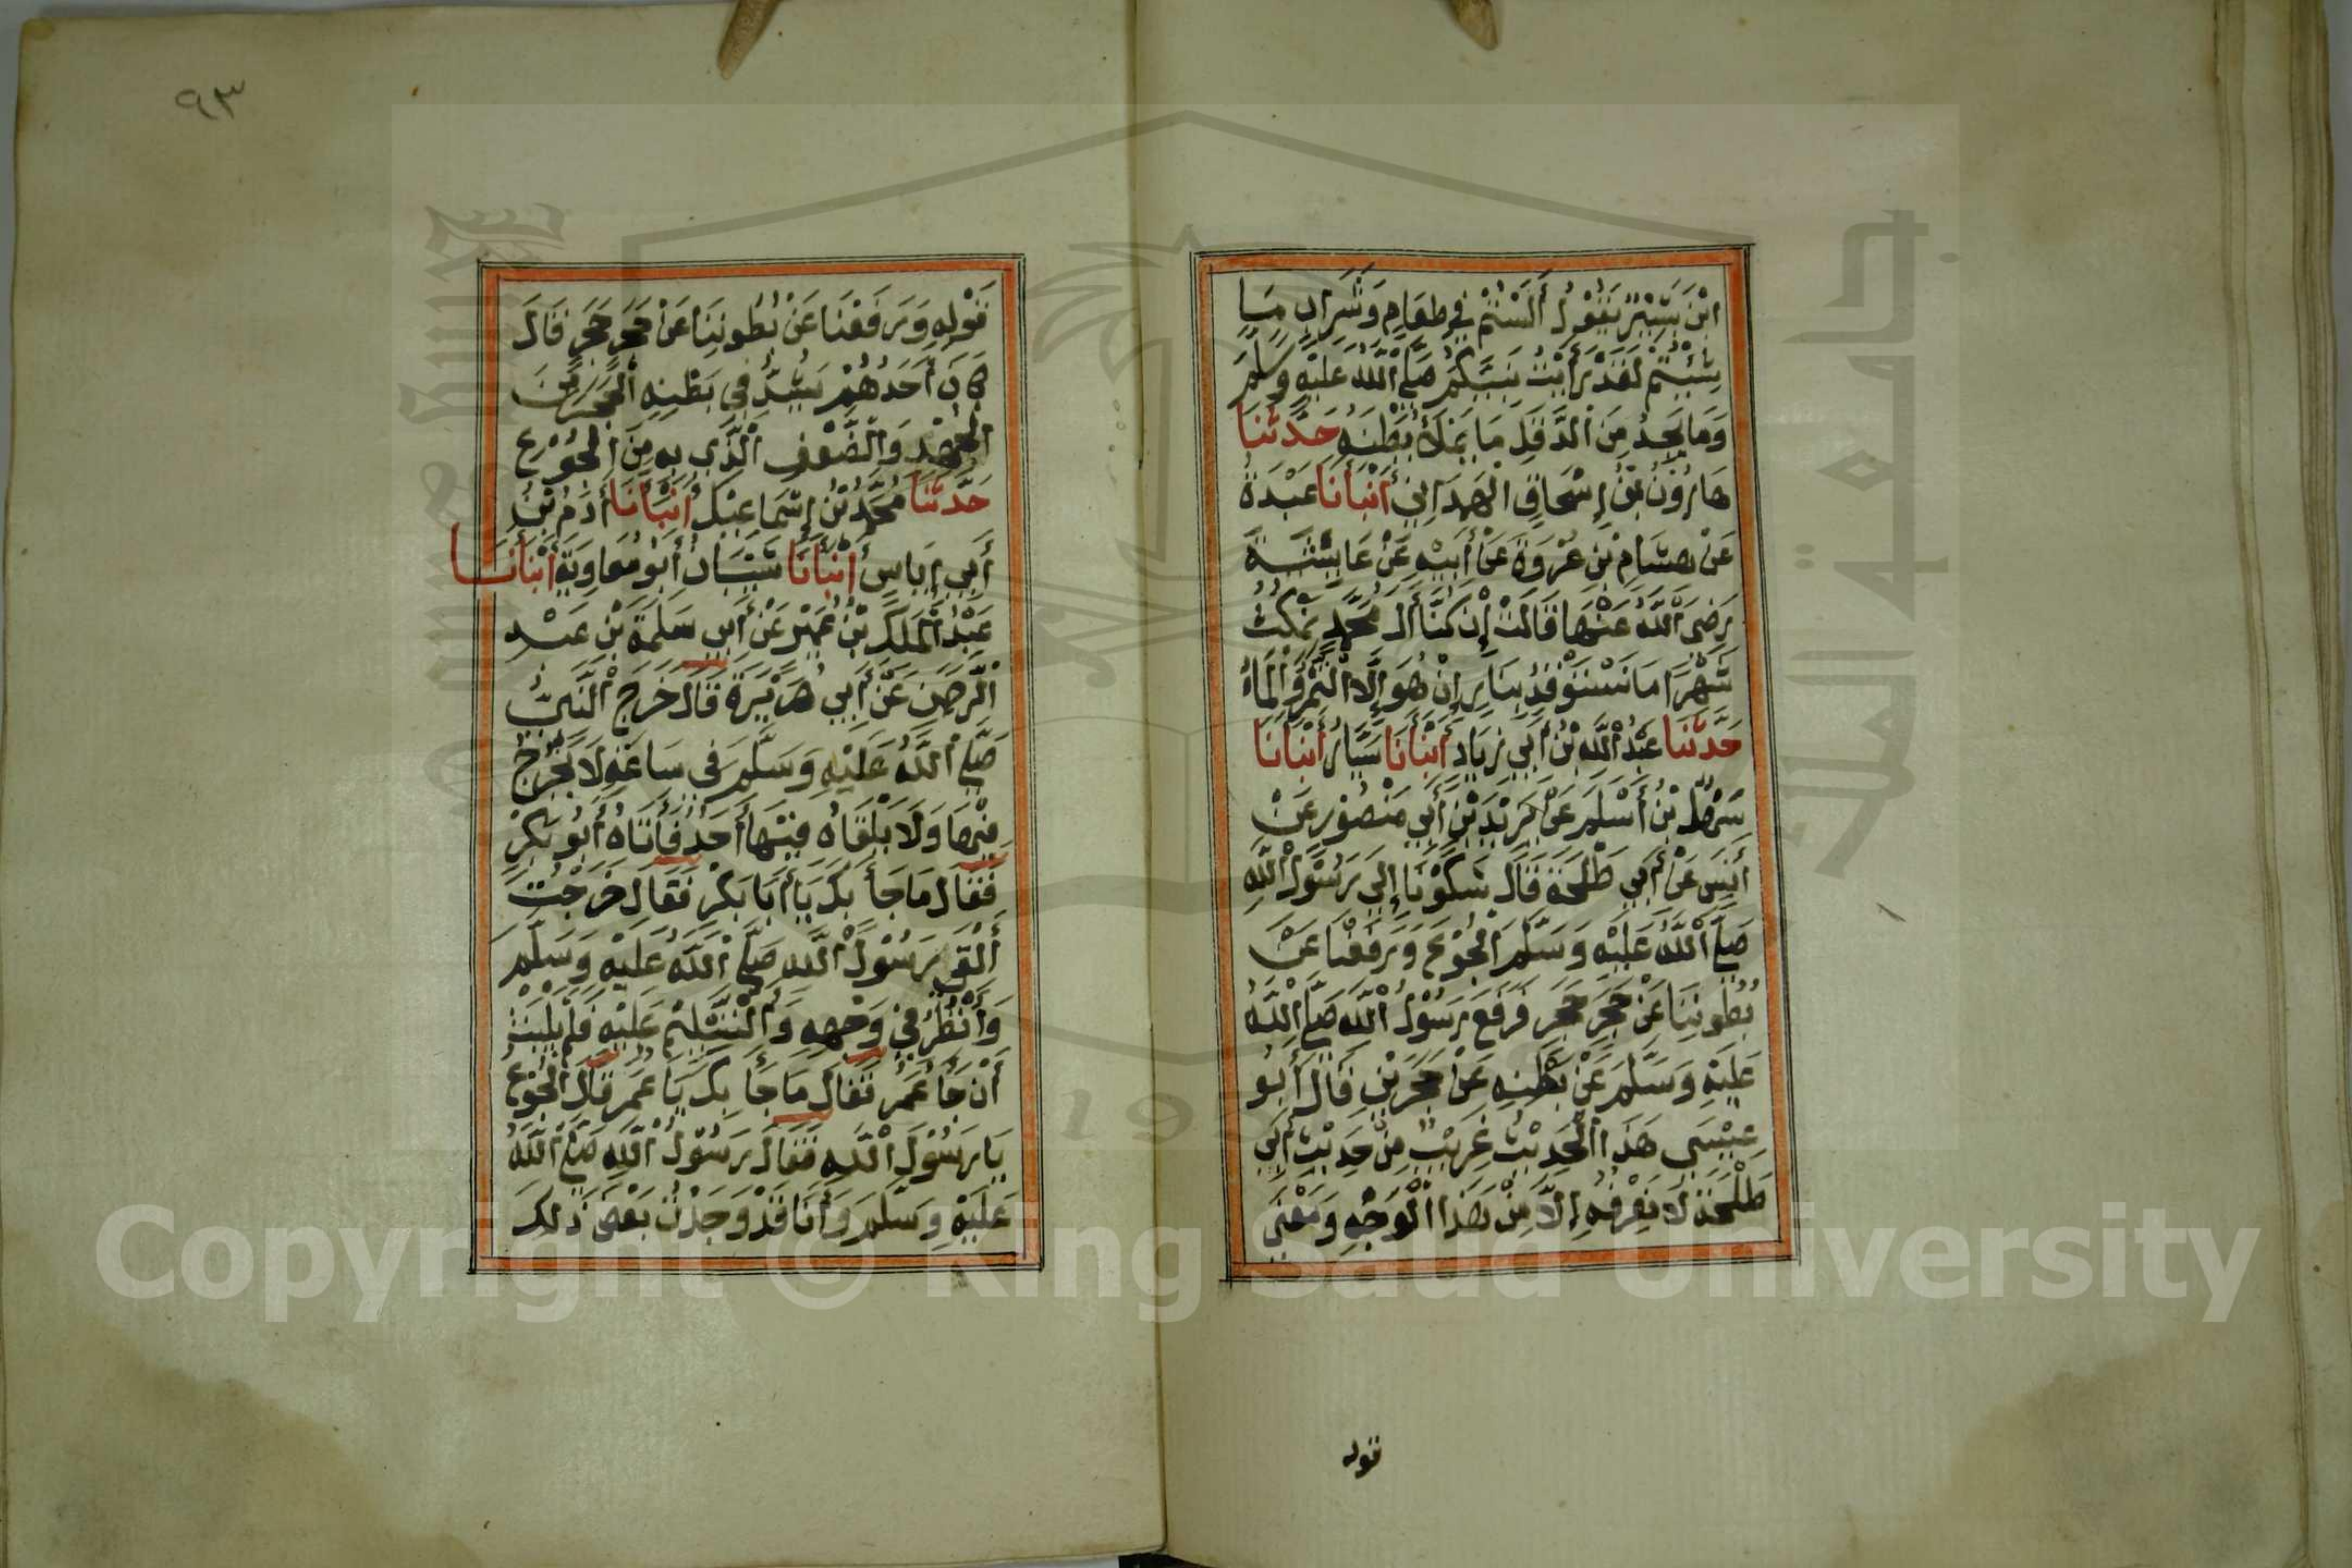 ابْنَ بَشِيْرٍ يَقُوْلُ أَلَسْتُمْ فِي طَعَامٍ وَشَرَابٍ مَا
شِئْتُمْ لَقَدْ رَأَيْتُ نَبِيَّكُمْ صَلَّى اللَّهُ عَلَيْهِ وَسَلَّمَ
وَمَا يَجِدُ مِنَ الدَّقَلِ مَا يَمْلَأُ بَطْنَهُ حَدَّثَنَا
هَارُوْنُ بْنُ إِسْحَاقَ الْهَمْدَانِيُّ أَنْبَأَنَا عَبْدَةُ
عَنْ هِشَامِ بْنِ عُرْوَةَ عَنْ أَبِيْهِ عَنْ عَائِشَةَ
رَضِيَ اللَّهُ عَنْهَا قَالَتْ إِنْ كُنَّا آلَ مُحَمَّدٍ نَمْكُثُ
شَهْرًا مَا نَسْتَوْقِدُ بِنَارٍ إِنْ هُوَ إِلَّا التَّمْرُ وَالْمَاءُ
حَدَّثَنَا عَبْدُ اللَّهِ بْنُ أَبِي زِيَادٍ أَنْبَأَنَا سَيَّارٌ أَنْبَأَنَا
سَهْلُ بْنُ أَسْلَمَ عَنْ يَزِيْدَ بْنِ أَبِي مَنْصُوْرٍ عَنْ
أَنَسٍ عَنْ أَبِي طَلْحَةَ قَالَ شَكَوْنَا إِلَى رَسُوْلِ اللَّهِ
صَلَّى اللَّهُ عَلَيْهِ وَسَلَّمَ الْجُوْعَ وَرَفَعْنَا عَنْ
بُطُوْنِنَا عَنْ حَجَرٍ حَجَرٍ فَرَفَعَ رَسُوْلُ اللَّهِ صَلَّى اللَّهُ
عَلَيْهِ وَسَلَّمَ عَنْ بَطْنِهِ عَنْ حَجَرَيْنِ قَالَ أَبُو
عِيْسَى هَذَا الْحَدِيْثُ غَرِيْبٌ مِنْ حَدِيْثِ أَبِي
طَلْحَةَ لَا نَعْرِفُهُ إِلَّا مِنْ هَذَا الْوَجْهِ وَمَعْنَى
قوله
٩٣
قَوْلِهِ وَرَفَعْنَا عَنْ بُطُوْنِنَا عَنْ حَجَرٍ حَجَرٍ قَالَ
كَانَ أَحَدُهُمْ يَشُدُّ فِي بَطْنِهِ الْحَجَرَ مِنَ
الْجُهْدِ وَالضَّعْفِ الَّذِي بِهِ مِنَ الْجُوْعِ
حَدَّثَنَا مُحَمَّدُ بْنُ إِسْمَاعِيْلَ أَنْبَأَنَا أَدَمُ بْنُ
أَبِي إِيَاسٍ أَنْبَأَنَا شَيْبَانُ أَبُو مُعَاوِيَةَ أَنْبَأَنَا
عَبْدُ الْمَلِكِ بْنُ عُمَيْرٍ عَنْ أَبِي سَلَمَةَ بْنِ عَبْدِ
الرَّحْمَنِ عَنْ أَبِي هُرَيْرَةَ قَالَ خَرَجَ النَّبِيُّ
صَلَّى اللَّهُ عَلَيْهِ وَسَلَّمَ فِي سَاعَةٍ لَا يَخْرُجُ
فِيْهَا وَلَا يَلْقَاهُ فِيْهَا أَحَدٌ فَأَتَاهُ أَبُو بَكْرٍ
فَقَالَ مَا جَاءَ بِكَ يَا أَبَا بَكْرٍ فَقَالَ خَرَجْتُ
أَلْقَى رَسُوْلَ اللَّهِ صَلَّى اللَّهُ عَلَيْهِ وَسَلَّمَ
وَأَنْظُرُ فِي وَجْهِهِ وَالتَّسْلِيْمَ عَلَيْهِ فَلَمْ يَلْبَثْ
أَنْ جَاءَ عُمَرُ فَقَالَ مَا جَاءَ بِكَ يَا عُمَرُ قَالَ الْجُوْعُ
يَا رَسُوْلَ اللَّهِ فَقَالَ رَسُوْلُ اللَّهِ صَلَّى اللَّهُ
عَلَيْهِ وَسَلَّمَ وَأَنَا قَدْ وَجَدْتُ بَعْضَ ذَلِكَ
جامعة الملك سعود
1957
Copyright © King Saud University